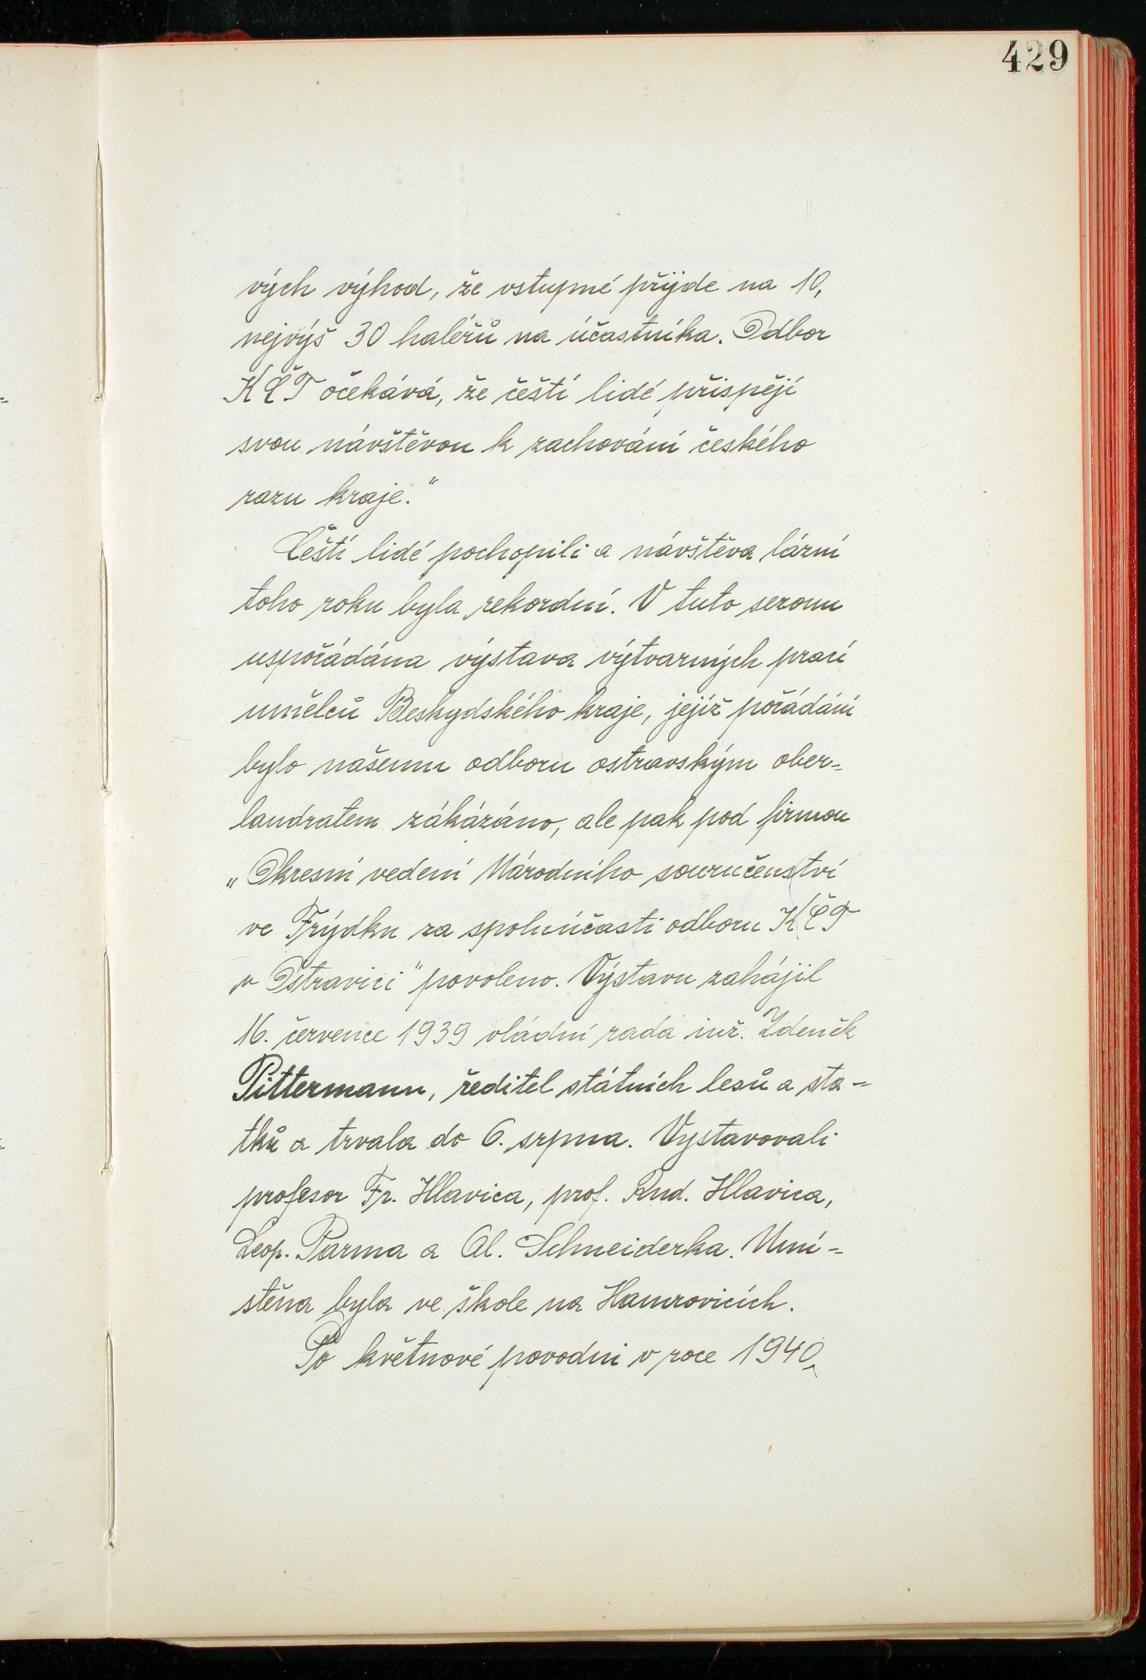 429
vých výhod, že vstupné přijde na 10,
nejvýš 30 haléřů na účastníka. Odbor
KČT očekává, že čeští lidé přispějí
svou návštěvou k zachování českého
razu kraje."
Čeští lidé pochopili a návštěva lázní
toho roku byla rekordní. V tuto sezonu
uspořádána výstava výtvarných prací
umělců Beskydského kraje, jejíž pořádání
bylo našemu odboru ostravským ober-
landratem zákázáno, ale pak pod firmou
„Okresní vedení Národního souručenství
ve Frýdku za spoluúčasti odboru KČT
v Ostravici" povoleno. Výstavu zahájil
16. července 1939 vládní rada inž. Zdeněk
Pittermann, ředitel státních lesů a sta-
tků a trvala do 6. srpna. Vystavovali
profesor Fr. Hlavica, prof. Rud. Hlavica,
Leop. Parma a Al. Schneiderka. Umí-
stěna byla ve škole na Hamrovicích.
Po květnové povodni v roce 1940,